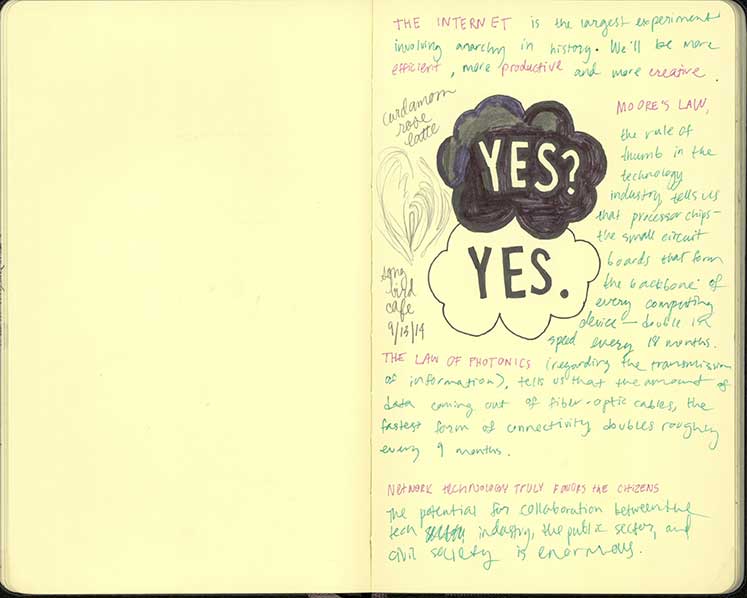 THE INTERNET is the largest experiment
involving anarchy in history. We'll be more
efficient, more productive and more creative.
cardamom
rose
latte
YES?
YES.
song
bird
cafe
9/13/14
MOORE'S LAW,
the rule of
thumb in the
technology
industry tells us
that processor chips-
the small circuit
boards that form
the backbone of
every computing
device — double in
speed every 18 months.
THE LAW OF PHOTONICS (regarding the transmission
of information), tells us that the amount of
data coming out of fiber-optic cables, the
fastest form of connectivity doubles roughly
every 9 months.
NETWORK TECHNOLOGY TRULY FAVORS THE CITIZENS
The potential for collaboration between the
tech industry, the public sector, and
civil society is enormous.